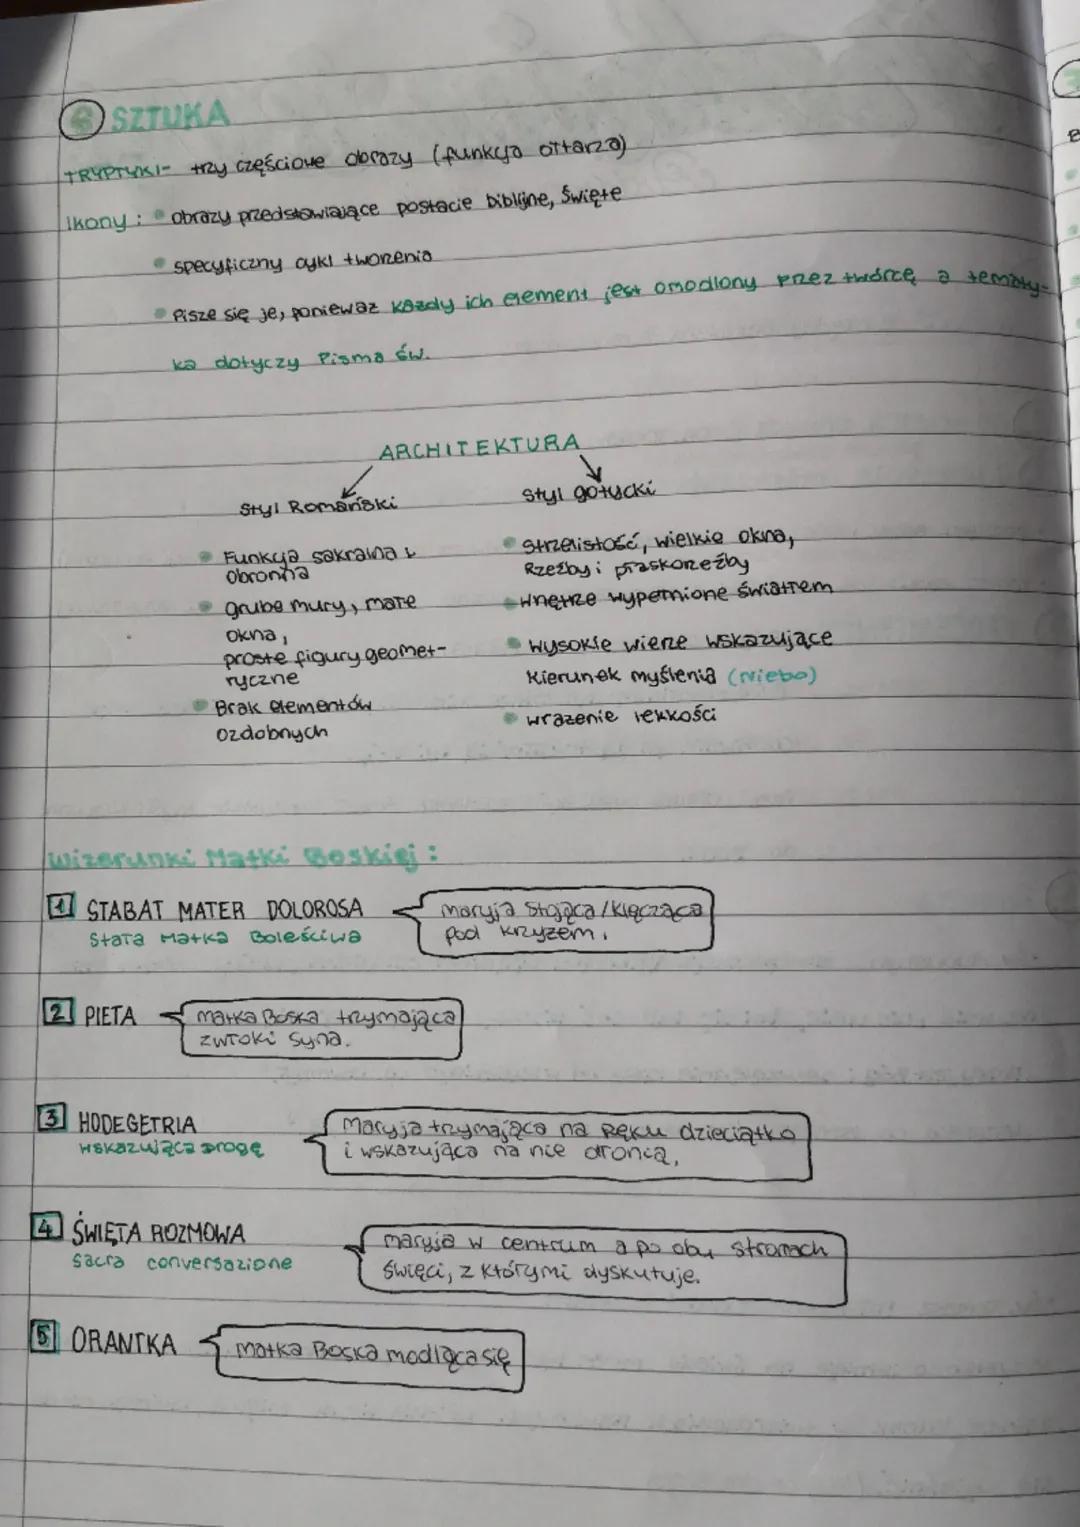 6 SZTUKA
TRYPTYKI- trzy częściowe obrazy (funkcja ołtarza)
Ikony: • obrazy przedstawiające postacie biblijne, Święte
• specyficzny cykl tworzenia
• Pisze się je, ponieważ każdy ich element jest omodlony przez twórcę a tematy-
ka dotyczy Pisma Św.
ARCHITEKTURA
Styl Romański
• Funkcja sakralna i
obronna
• grube mury, małe
okna,
proste figury geomet-
ryczne
• Brak elementów
ozdobnych
Styl gotycki
• Strzelistość, wielkie okna,
Rzeźby i płaskorzeźby
• wnętrze wypełnione światłem
• Wysokie wieże wskazujące
kierunek myślenia (Niebo)
• wrażenie lekkości
Wizerunki Matki Boskiej:
1 STABAT MATER DOLOROSA
Stała Matka Boleściwa
Maryja Stojąca/Klęcząca
pod krzyżem.
2 PIETA
Matka Boska trzymająca
zwłoki Syna.
3 HODEGETRIA
Wskazująca Drogę
Maryja trzymająca na Ręku dzieciątko
i wskazująca na nie dłonią.
4 ŚWIĘTA ROZMOWA
Sacra conversazione
Maryja w centrum a po obu stronach
Święci, z którymi dyskutuje.
5 ORANTKA
Matka Boska modląca się